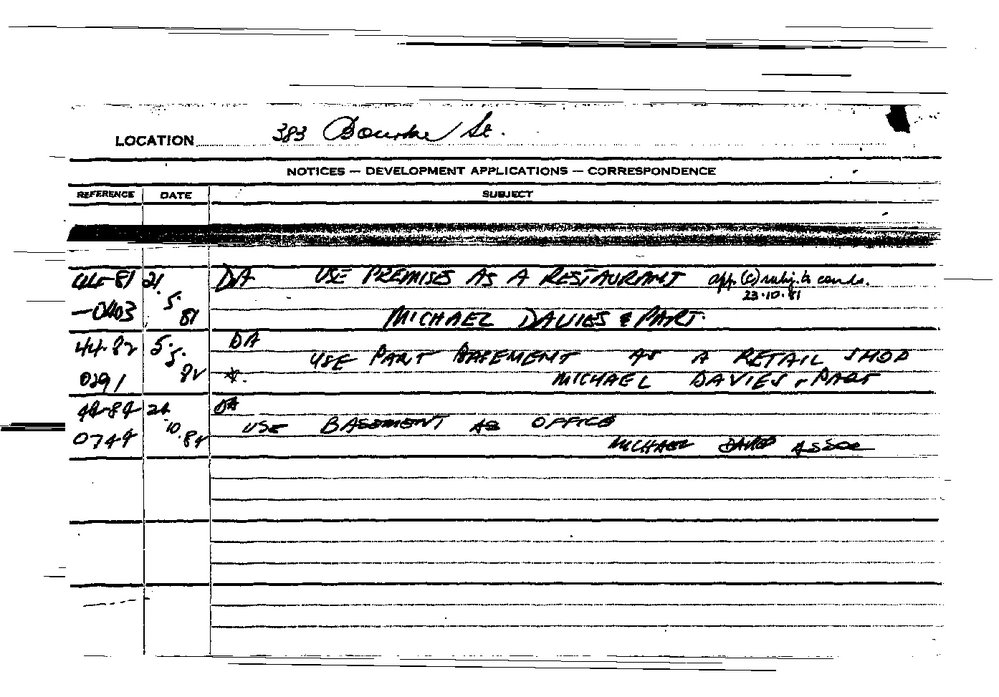 LOCATION 383 Bourke St.
NOTICES — DEVELOPMENT APPLICATIONS — CORRESPONDENCE
REFERENCE DATE SUBJECT
44-81 21 DA USE PREMISES AS A RESTAURANT app. (c) subj. to conds.
—0403 .5. 81 23.10.81
MICHAEL DAVIES & PART.
44.82 5. DA
5. USE PART BASEMENT AS A RETAIL SHOP
0291 82 *. MICHAEL DAVIES & PART
44-84 DA
0744 .10.84 USE BASEMENT AS OFFICE
MICHAEL DAVIES ASSOC